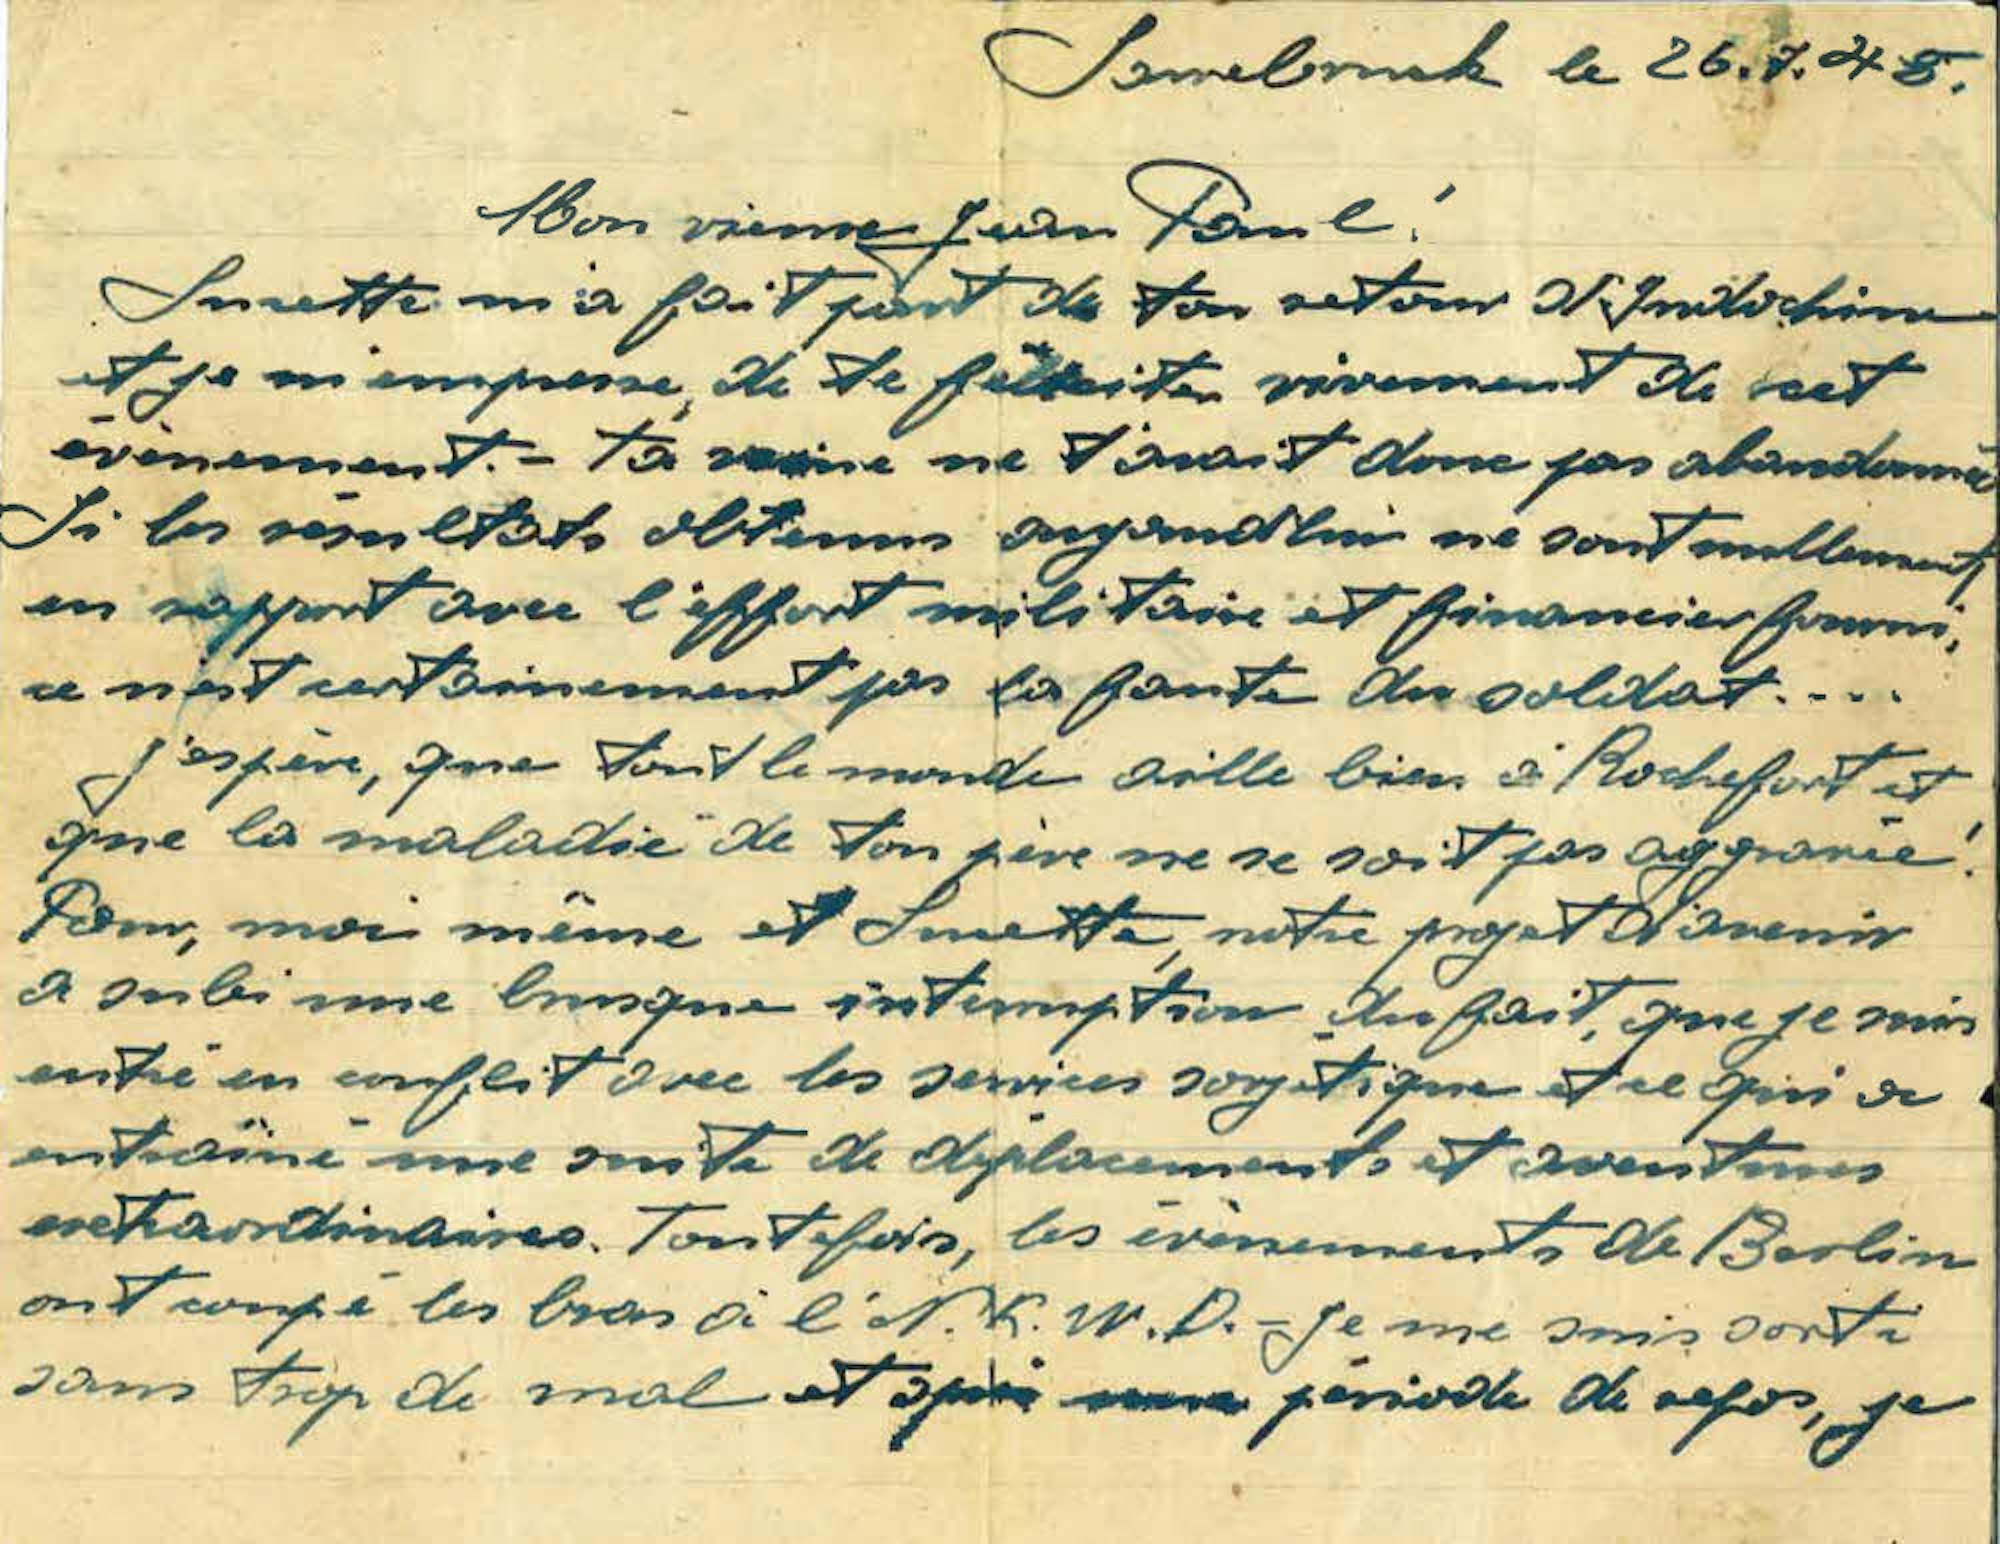 Sarrebruck le 26.7.48.
Mon vieux Jean Paul!
Lucette m'a fait part de ton retour d'Indochine
et je m'empresse, de te féliciter vivement de cet
évènement. - Ta veine ne t'avait donc pas abandonné
Si les résultats obtenus aujourd'hui ne sont nullement
en rapport avec l'effort militaire et financier fourni,
ce n'est certainement pas la faute du soldat....
J'espère, que tout le monde aille bien à Rochefort et
que la maladie de ton père ne se soit pas aggravée!
Pour, moi même et Lucette, notre projet d'avenir
a subi une brusque interruption du fait, que je suis
entré en conflit avec les services sovjétique et ce qui a
entraîné une suite de déplacements et aventures
extraordinaires. Toutefois, les évènements de Berlin
ont coupé les bras à l'N.K.W.D. - Je me suis sorti
sans trop de mal et période de repos, je